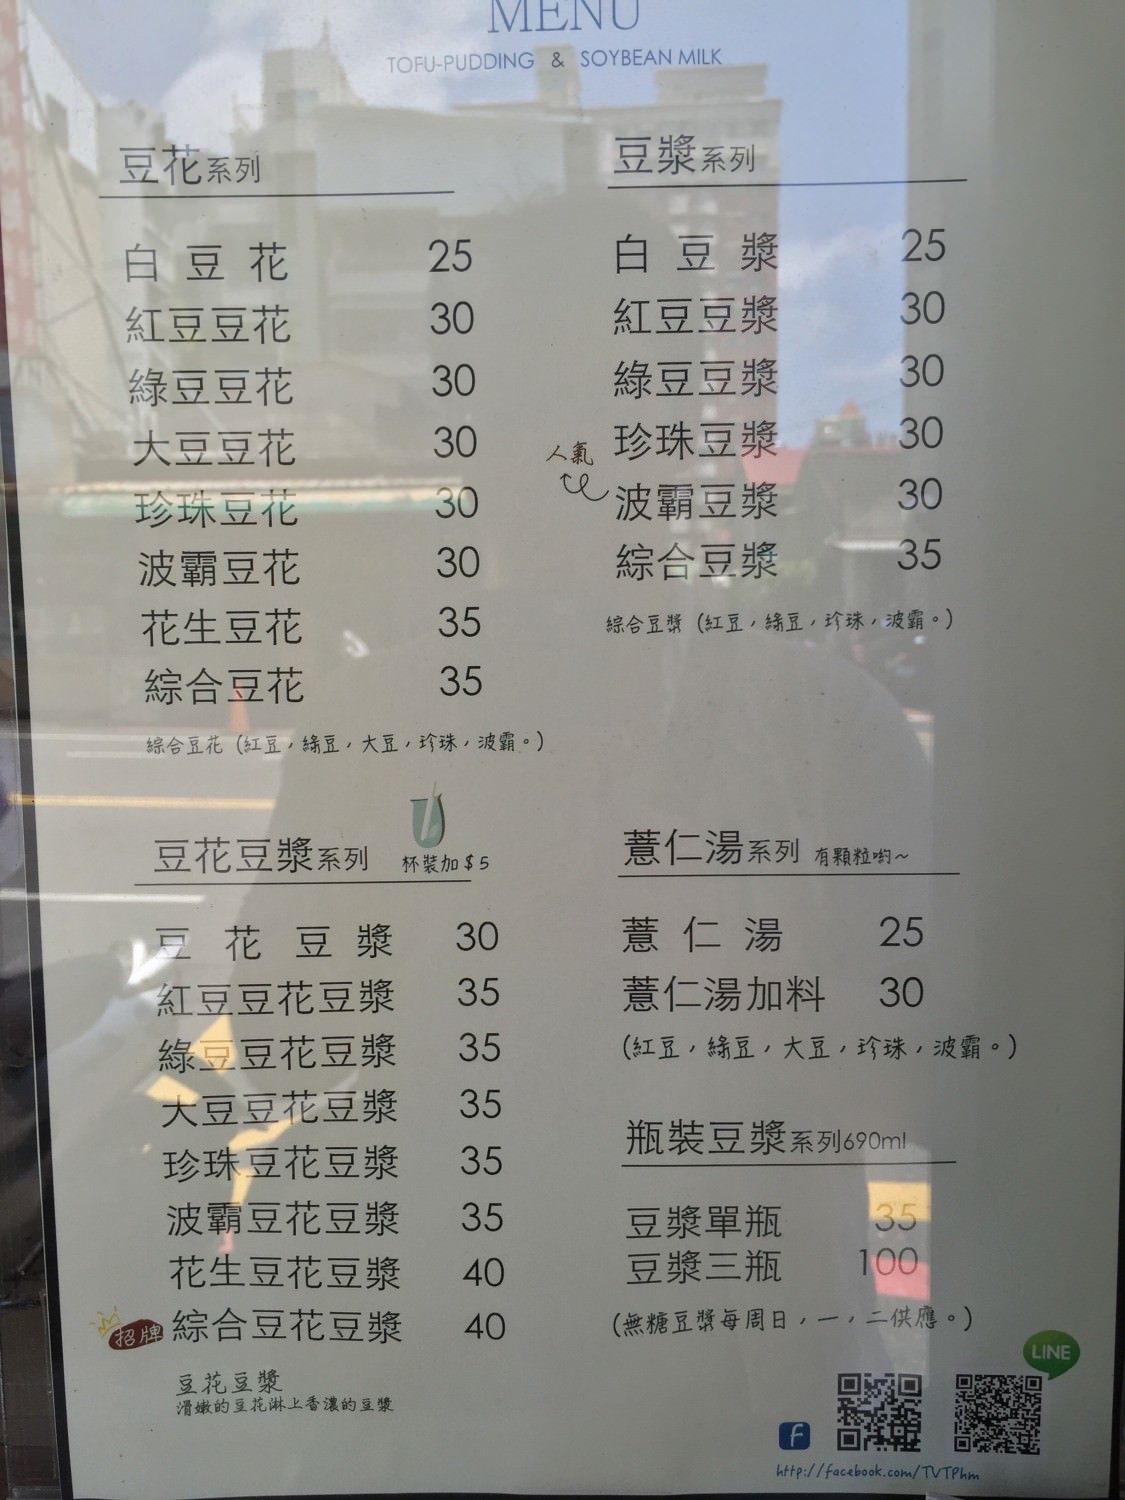 MENU
TOFU-PUDDING & SOYBEAN MILK
豆花系列
白豆花 25
紅豆豆花 30
綠豆豆花 30
大豆豆花 30
珍珠豆花 30
波霸豆花 30
花生豆花 35
綜合豆花 35
綜合豆花（紅豆，綠豆，大豆，珍珠，波霸。）
豆漿系列
白豆漿 25
紅豆豆漿 30
綠豆豆漿 30
珍珠豆漿 30
人氣
波霸豆漿 30
綜合豆漿 35
綜合豆漿（紅豆，綠豆，珍珠，波霸。）
豆花豆漿系列 杯裝加$5
豆花豆漿 30
紅豆豆花豆漿 35
綠豆豆花豆漿 35
大豆豆花豆漿 35
珍珠豆花豆漿 35
波霸豆花豆漿 35
花生豆花豆漿 40
招牌 綜合豆花豆漿 40
豆花豆漿
滑嫩的豆花淋上香濃的豆漿
薏仁湯系列 有顆粒喲~
薏仁湯 25
薏仁湯加料 30
（紅豆，綠豆，大豆，珍珠，波霸。）
瓶裝豆漿系列690ml
豆漿單瓶 35
豆漿三瓶 100
（無糖豆漿每周日，一，二供應。）
LINE
f
http://facebook.com/TVTPhm